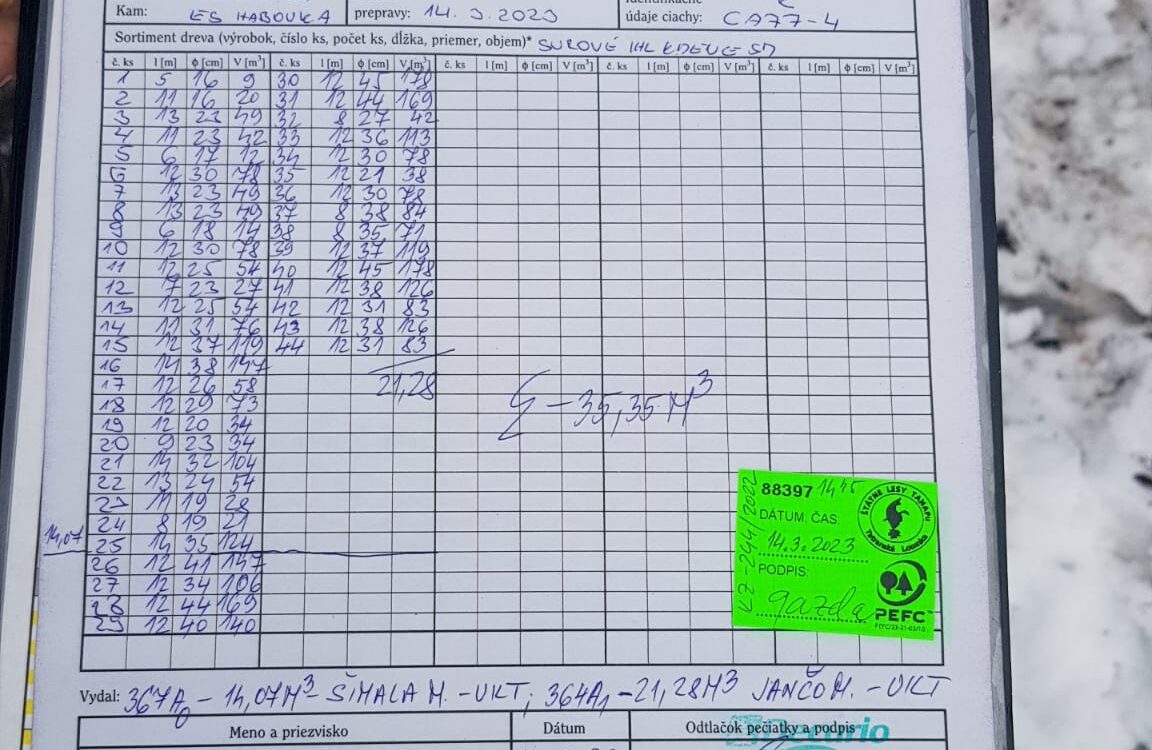 Kam: LS HABOVKA prepravy: 14.3.2023 údaje ciachy: CA77-4
Sortiment dreva (výrobok, číslo ks, počet ks, dĺžka, priemer, objem)* SUROVÉ IHL KMEŇE SD
č. ks l [m] ϕ [cm] V [m³] č. ks l [m] ϕ [cm] V [m³] č. ks l [m] ϕ [cm] V [m³] č. ks l [m] ϕ [cm] V [m³] č. ks l [m] ϕ [cm] V [m³]
1 5 16 9 30 12 45 178
2 11 16 20 31 12 44 169
3 13 23 49 32 8 27 42
4 11 23 42 33 12 36 113
5 6 17 12 34 12 30 78
6 12 30 78 35 12 21 38
7 13 23 49 36 12 30 78
8 13 23 49 37 8 38 84
9 6 18 14 38 8 35 71
10 12 30 78 39 12 37 119
11 12 25 54 40 12 45 178
12 7 23 27 41 12 38 126
13 12 25 54 42 12 31 83
14 11 31 76 43 12 38 126
15 12 37 119 44 12 31 83
16 14 38 147
17 12 26 58 21,28
18 12 29 73 Σ - 35,35 M³
19 12 20 34
20 9 23 34
21 14 32 104
22 13 24 54
23 11 19 28
24 8 19 21
14,07 25 14 35 124
26 12 41 147
27 12 34 106
28 12 44 169
29 12 40 140
88397 1445
ŠTÁTNE LESY TANAPU
Tatranská Lomnica
DÁTUM, ČAS:
14.3.2023
PODPIS:
gazda
KZ-244/2022
PEFC
Vydal: 367A0 - 14,07M³ - ŠIMALA M. - UKT; 364A1 - 21,28M³ JANČO M. - UKT
Meno a priezvisko Dátum Odtlačok pečiatky a podpis